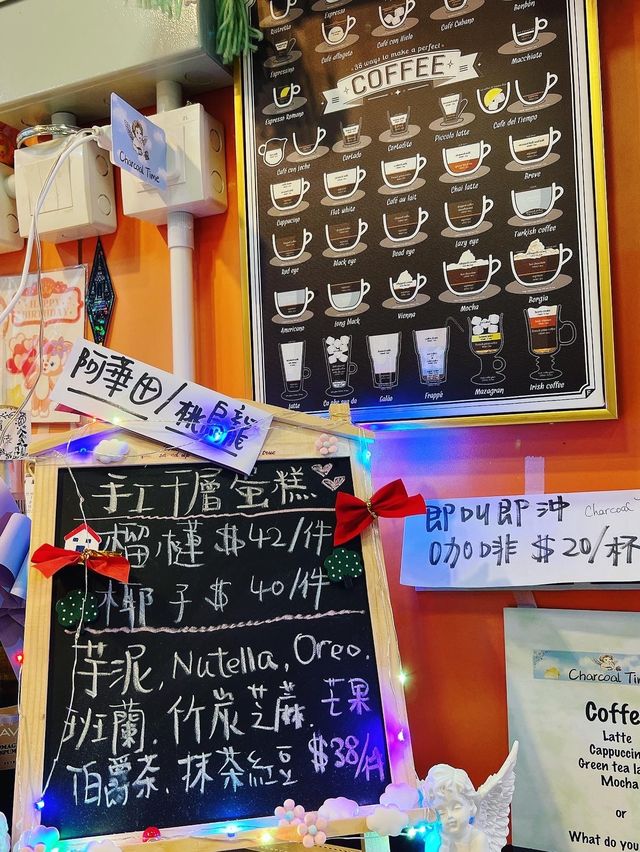 Ristretto
Espresso
Bonbón
Espressino
Café affogato
Café con Hielo
Café Cubano
Macchiato
38 ways to make a perfect
COFFEE
Espresso Romano
Café con leche
Cortado
Cortadito
Piccolo latte
Café del Tiempo
Cappucino
Flat white
Café au lait
Chai latte
Breve
Red eye
Black eye
Dead eye
Lazy eye
Turkish coffee
Americano
long black
Vienna
Mocha
Borgia
latte
Galão
Frappé
Mazagran
Irish coffee
Charcoal Time
HAPPY
BIRTHDAY
阿華田/桃
手工千層蛋糕
榴槤 $42/件
椰子 $40/件
芋泥, Nutella, Oreo,
班蘭, 竹炭芝蔴, 芒果
伯爵茶, 抹茶紅豆 $38/件
即叫即沖 Charcoal
咖啡 $20/杯
Charcoal Tim
Coffe
Latte
Cappuccin
Green tea la
Mocha
or
What do you